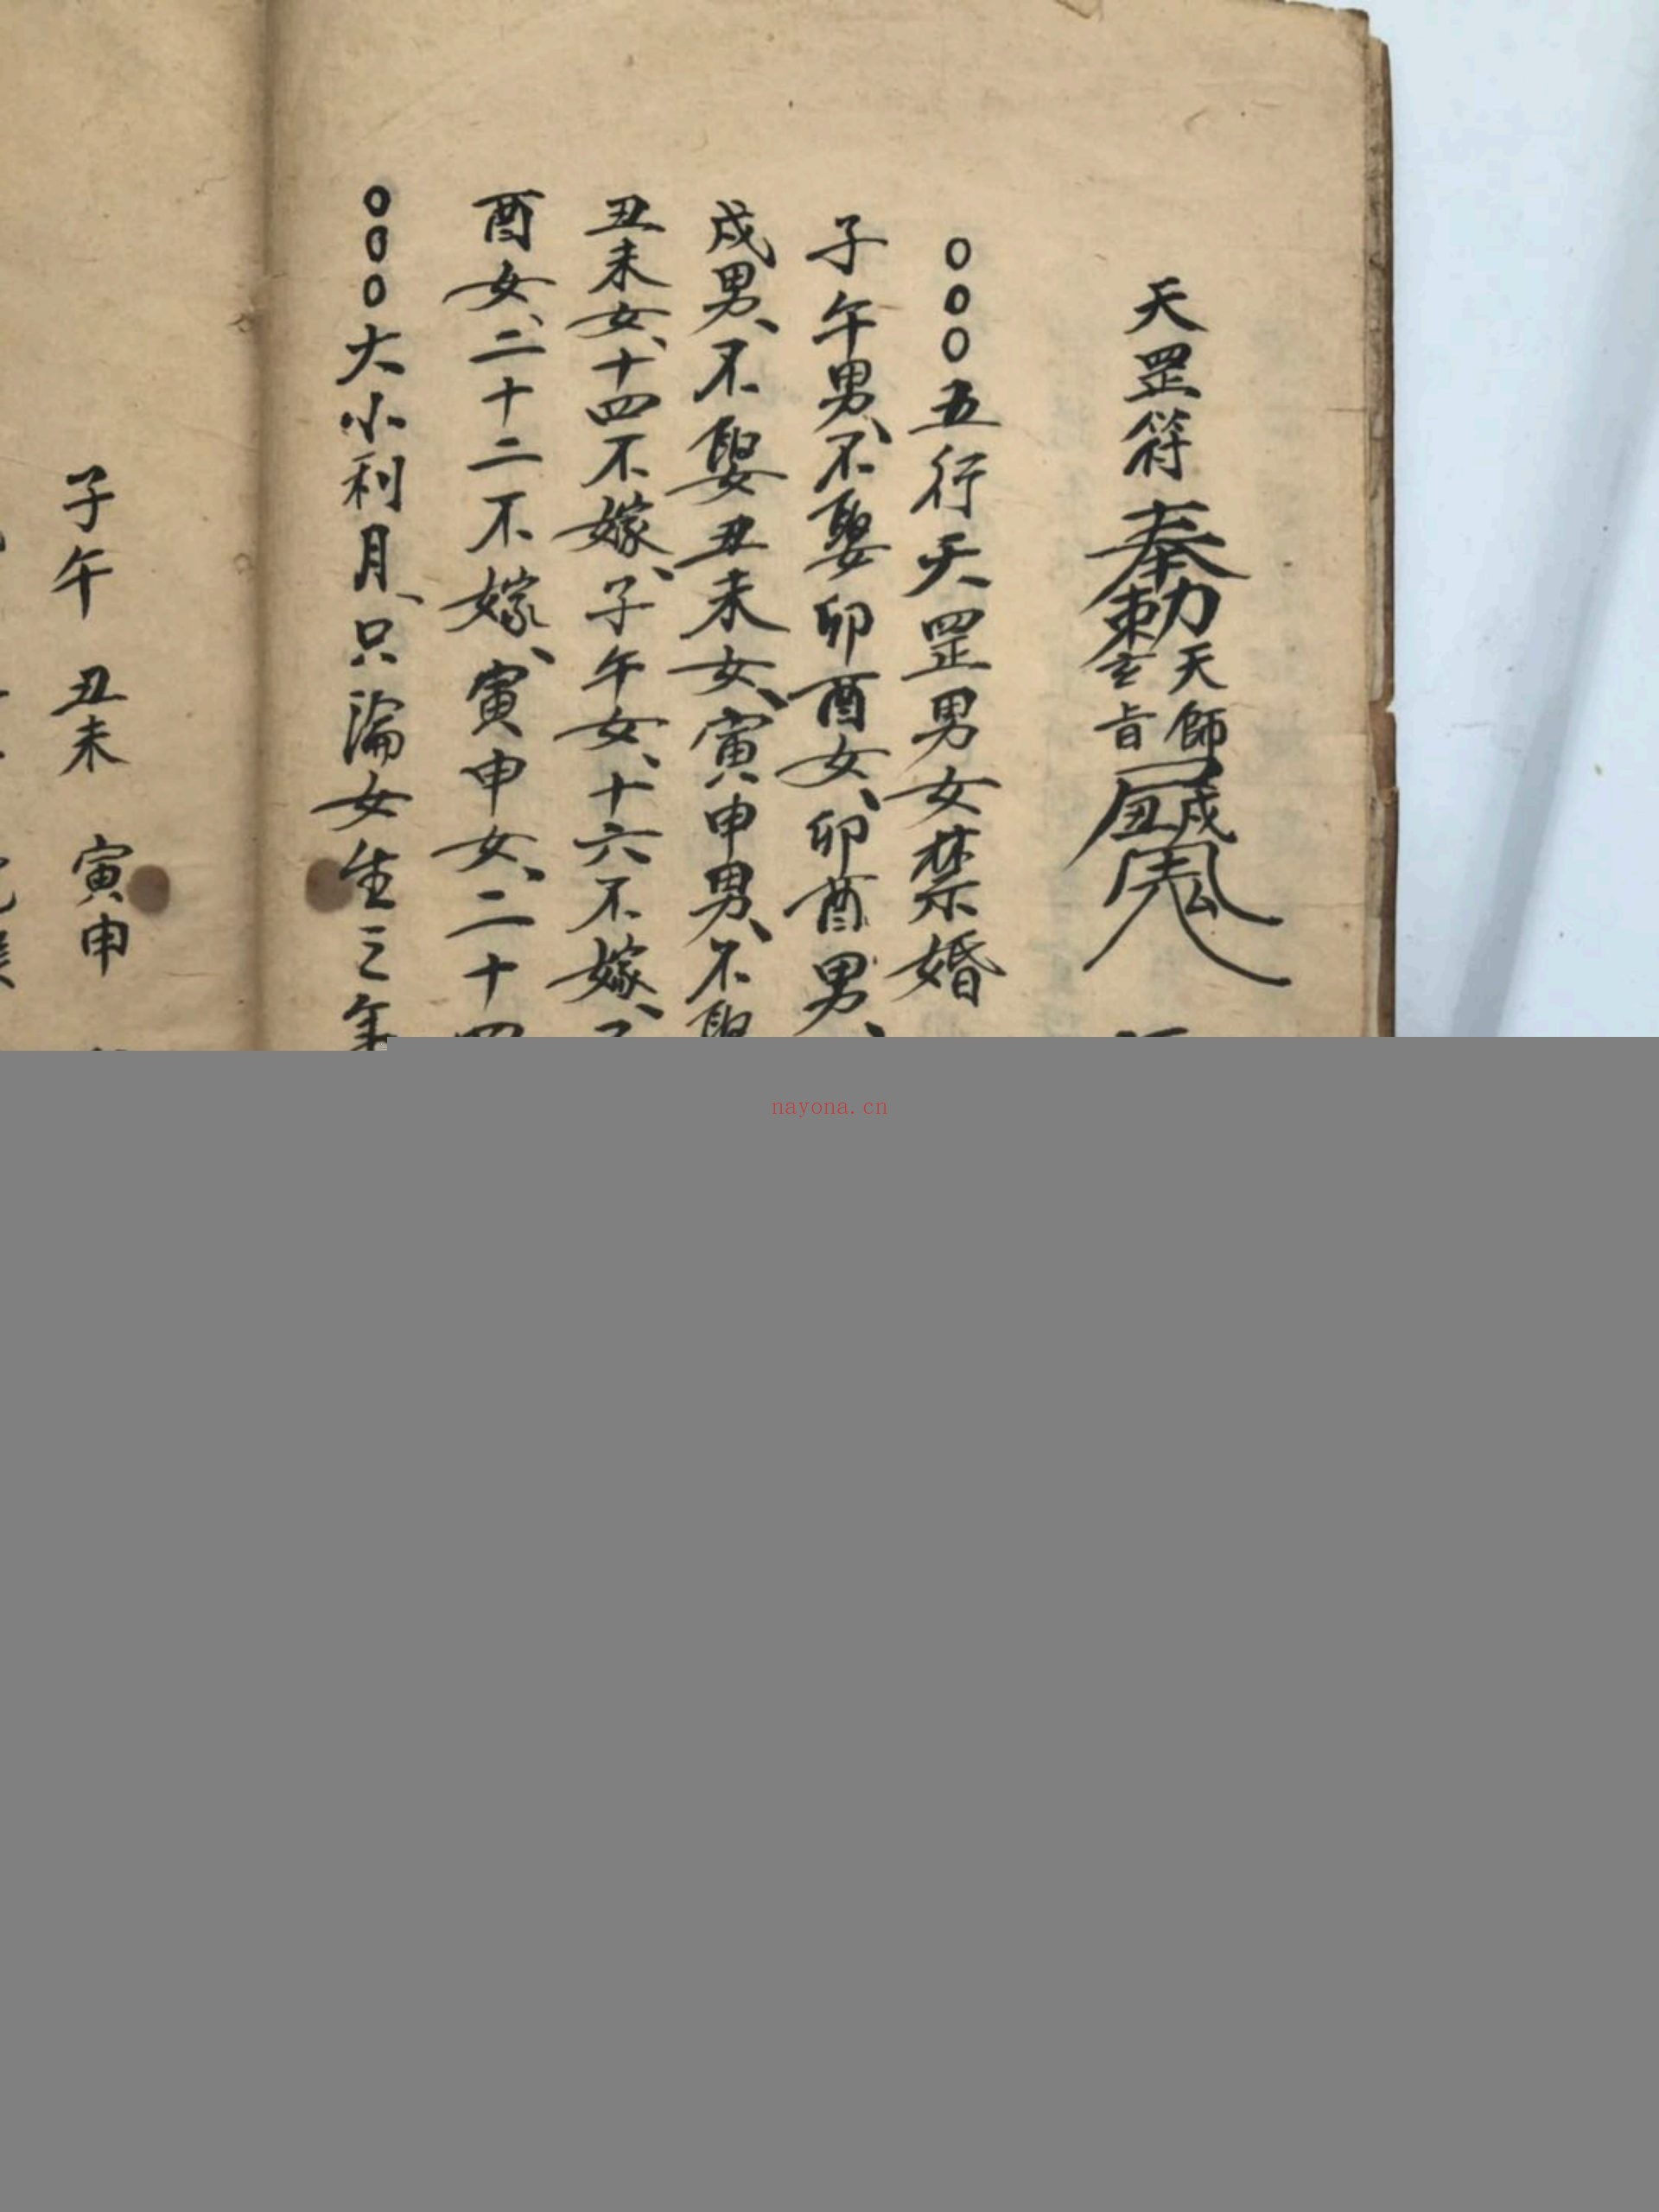 天罡符 奉勅 天師
玄旨
○○○五行天罡男女禁婚
子午男、不娶卯酉女、卯酉男、
戌男、不娶丑未女、寅申男、不娶
丑未女、十四不嫁、子午女、十六不嫁、
酉女、二十二不嫁、寅申女、二十四
○○○大小利月、只淪女生之年
子午 丑未 寅申
nayona.cn